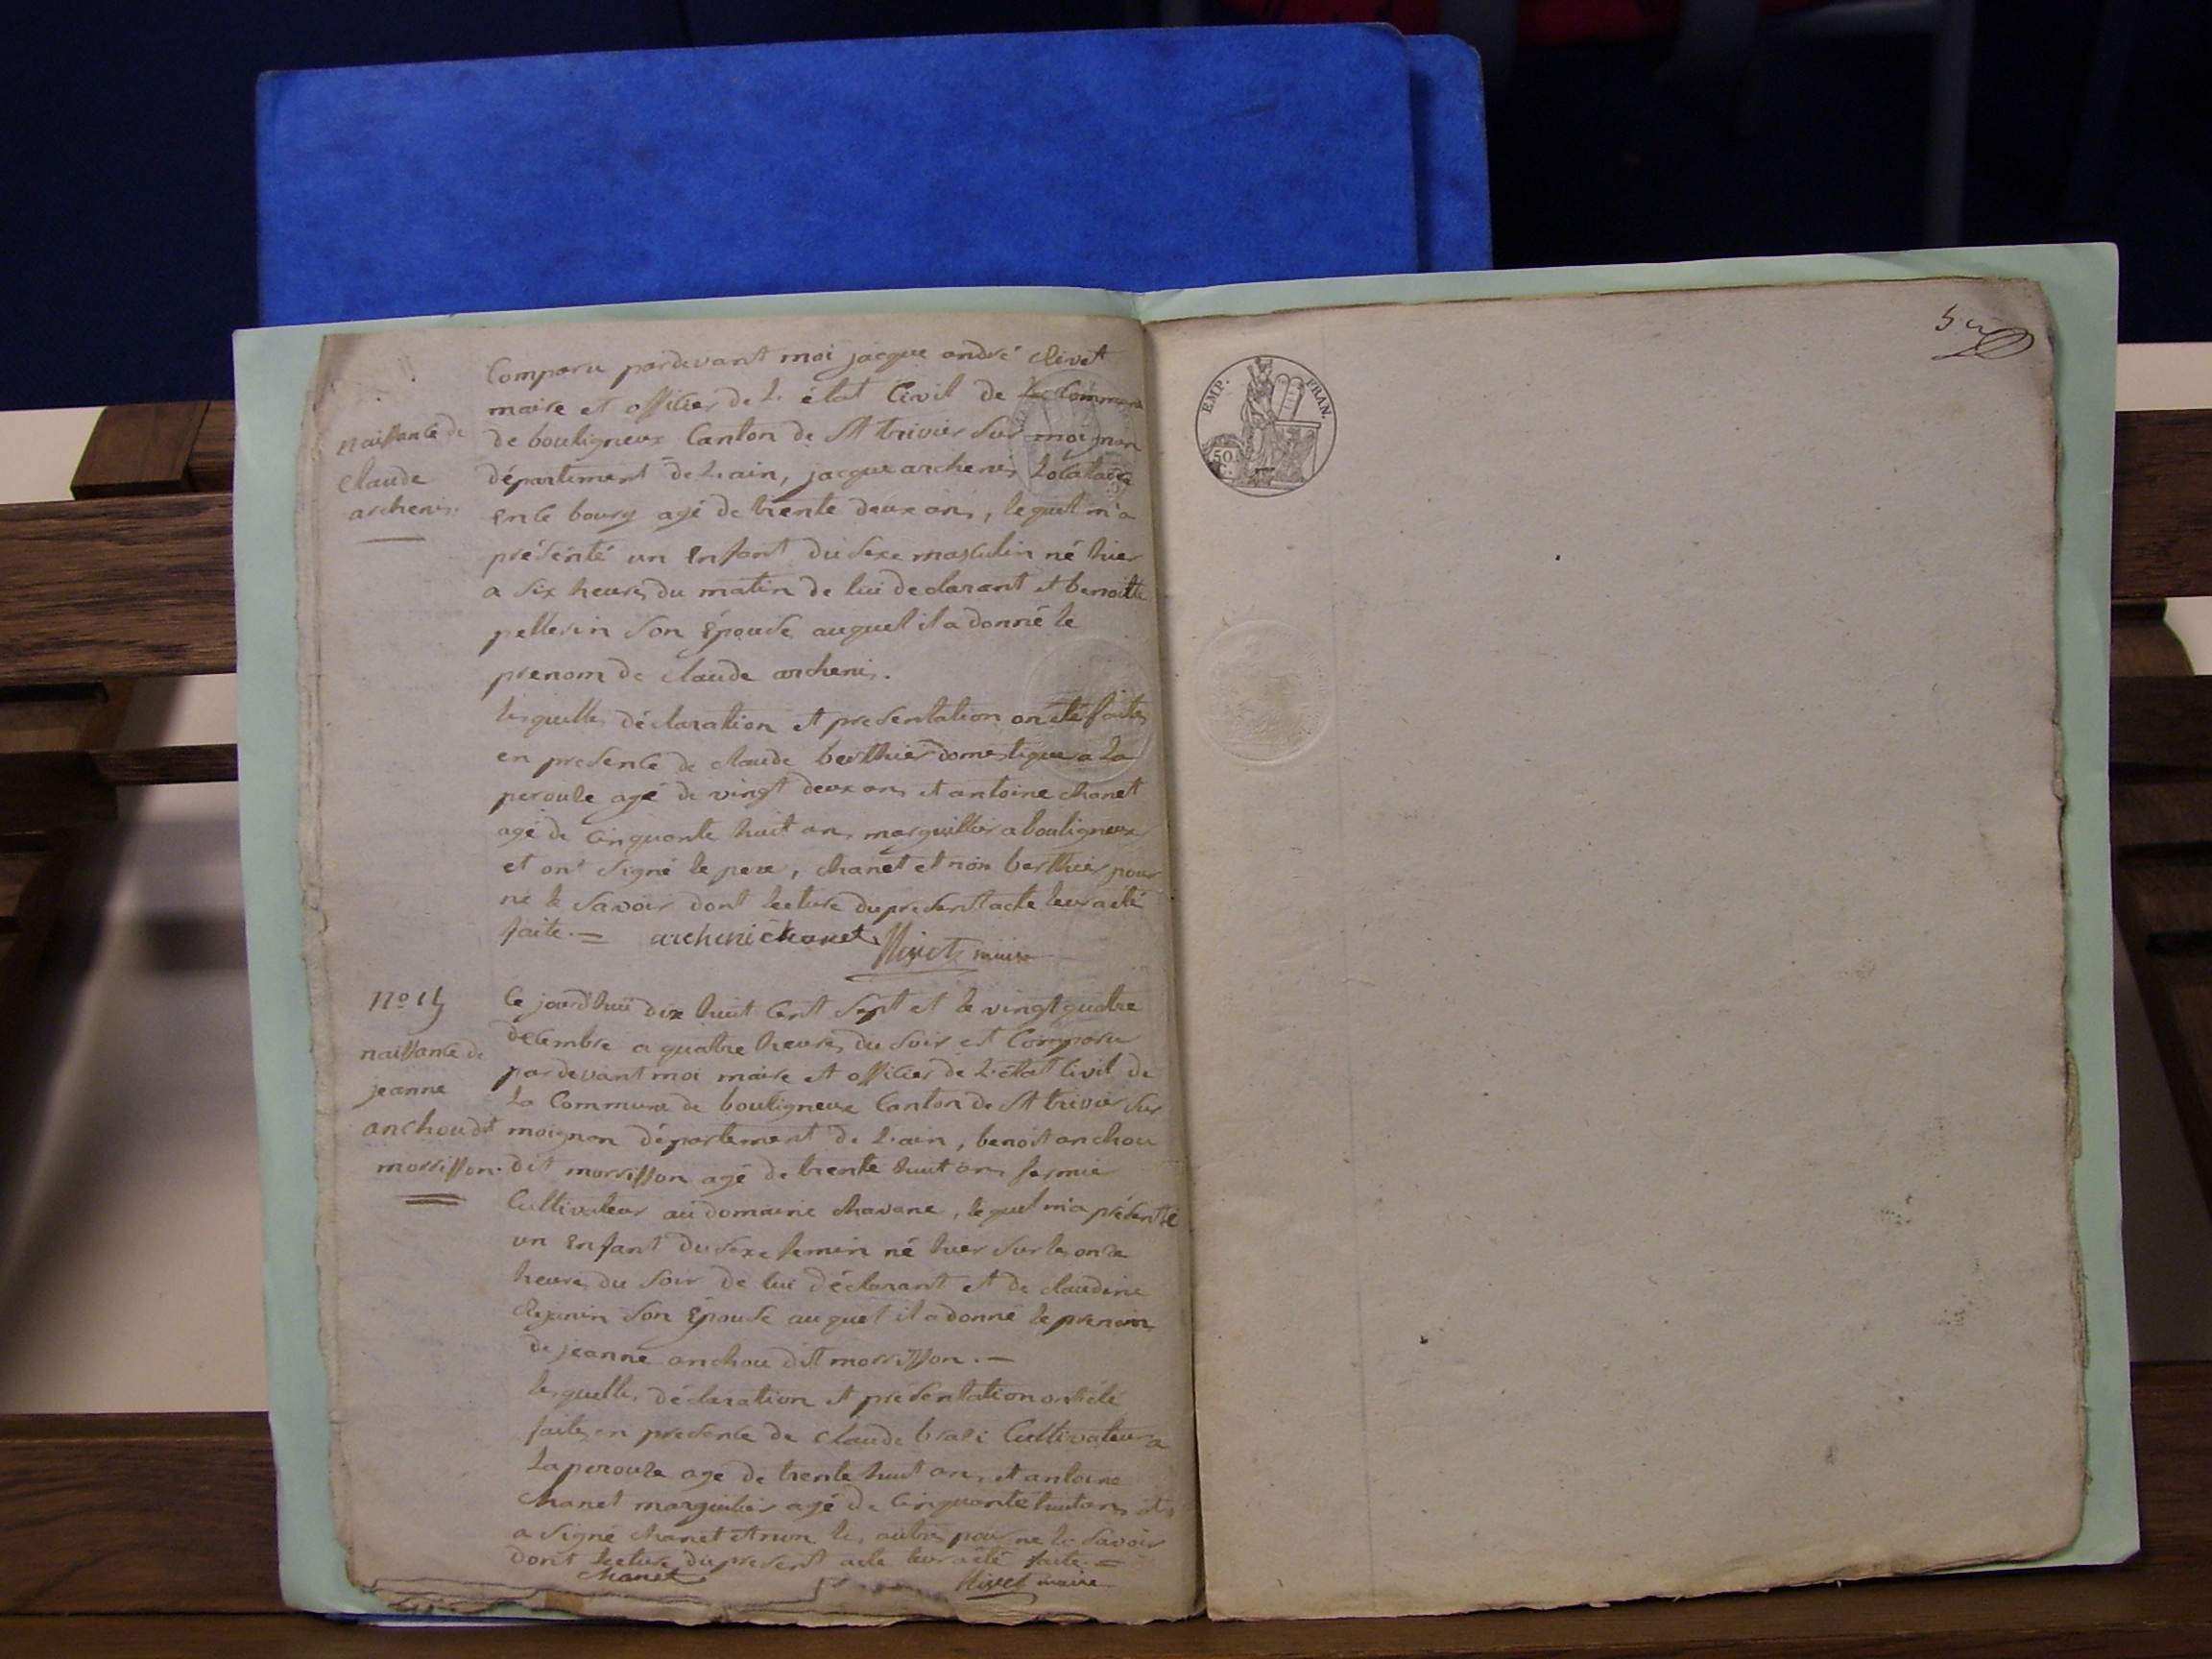 Comparu pardevant moi jacque andré
maire et officier de L. état Civil de La Commune
naissance de
de bouligneux Canton de St trivier sur moignan
claude
département de L'ain, jacque archeni Locataire
archeni.
en ce bourg agé de trente deux ans, lequel m'a
présénté un Enfant du sexe masculin né hier
a six heures du matin de lui declarant et benoitte
pellerin son Épouse auquel il a donné le
prenom de claude archeni.
lesquelles déclaration et presentation on été faites
en presence de claude berthier domestique a La
peroule agé de vingt deux ans et antoine chanet
agé de Cinquante huit ans marguillier a bouligneux
et ont signé le pere, chanet et non berthier pour
ne le savoir dont lecture du present acte leur a été
faite. = archeni chanet maire
Ce jourd'huii dix huit Cent sept et le vingt quatre
naissance de
decembre a quattre heures du soir est Comparu
jeanne
pardevant moi maire et officier de L'état Civil de
La Commune de bouligneux Canton de St trivier sur
anchou dit
moignan département de L'ain, benoit anchou
morisson.
dit morrisson agé de trente huit ans fermier
Cultivateur au domaine chavane, lequel m'a présenté
un Enfant du sexe femin né hier sur les onze
heures du soir de lui déclarant et de claudine
son Épouse auquel il a donné le prenom
de jeanne anchou dit morrisson. —
lesquelles déclaration et présentation ont été
faites en presence de claude Cultivateur a
La peroule agé de trente huit ans et antoine
chanet marguillier agé de Cinquante huit ans et
a signé chanet et non les autres pour ne le savoir
dont lecture du present acte leur a été faite. =
chanet maire
EMP. FRAN.
50.
C.